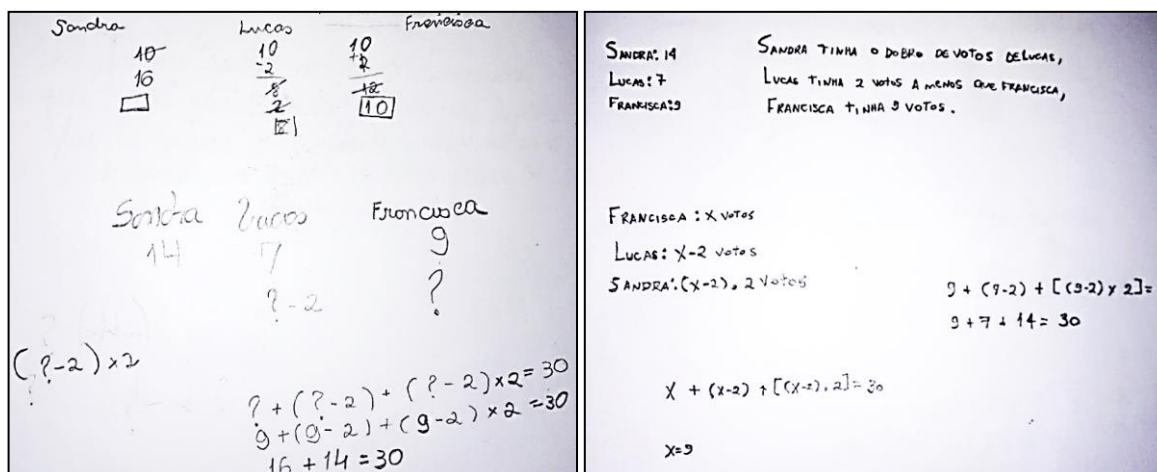 Sandra Lucas Francisca
10 10 10
16 -2 +2
8 12
2 10
Sandra Lucas Francisca
14 7 9
?-2 ?
(?-2)×2
?+(?-2)+(?-2)×2=30
9+(9-2)+(9-2)×2=30
16+14=30
SANDRA: 14
LUCAS: 7
FRANCISCA: 9
SANDRA TINHA O DOBRO DE VOTOS DE LUCAS,
LUCAS TINHA 2 VOTOS A MENOS QUE FRANCISCA,
FRANCISCA TINHA 9 VOTOS.
FRANCISCA: X VOTOS
LUCAS: X-2 VOTOS
SANDRA: (X-2).2 VOTOS
9+(9-2)+[(9-2)×2]=
9+7+14=30
X+(X-2)+[(X-2).2]=30
X=9